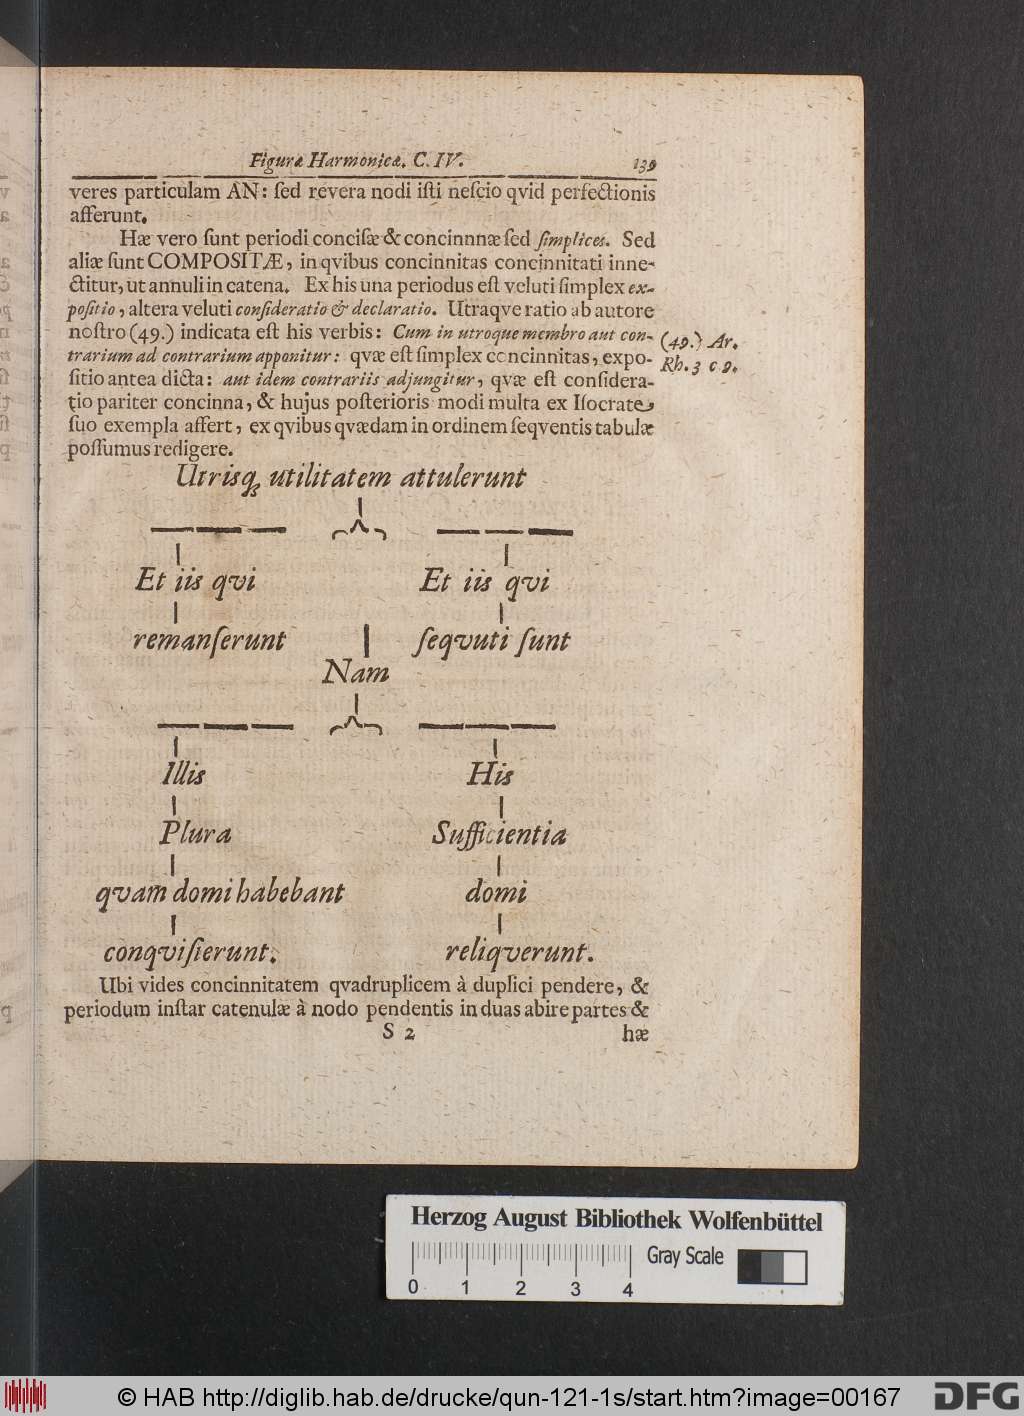 Figuræ Harmonicæ. C. IV. 139
veres particulam AN: ſed revera nodi iſti neſcio qvid perfectionis
afferunt.
Hæ vero ſunt periodi conciſæ & concinnnæ ſed ſimplices. Sed
aliæ ſunt COMPOSITÆ, in qvibus concinnitas concinnitati inne-
ctitur, ut annuli in catena. Ex his una periodus eſt veluti ſimplex ex-
poſitio, altera veluti conſideratio & declaratio. Utraqve ratio ab autore
noſtro (49.) indicata eſt his verbis: Cum in utroque membro aut con-
trarium ad contrarium apponitur: qvæ eſt ſimplex concinnitas, expo-
ſitio antea dicta: aut idem contrariis adjungitur, qvæ eſt conſidera-
tio pariter concinna, & hujus poſterioris modi multa ex Iſocrate
ſuo exempla affert, ex qvibus qvædam in ordinem ſeqventis tabulæ
poſſumus redigere.
(49.) Ar.
Rh. 3 c 9.
Utrisq; utilitatem attulerunt
Et iis qvi Et iis qvi
remanſerunt ſeqvuti ſunt
Nam
Illis His
Plura Sufficientia
qvam domi habebant domi
conqviſierunt. reliqverunt.
Ubi vides concinnitatem qvadruplicem à duplici pendere, &
periodum inſtar catenulæ à nodo pendentis in duas abire partes &
S 2 hæ
Herzog August Bibliothek Wolfenbüttel
Gray Scale
0 1 2 3 4
© HAB http://diglib.hab.de/drucke/qun-121-1s/start.htm?image=00167
DFG